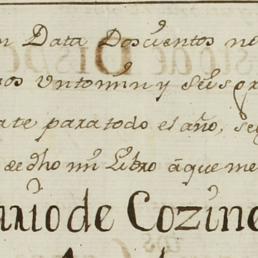 n Data Doscientos no
os Untomin y Seis gr
ate para todo el año, se
de dho mi Libro áque me
ario de Cozine